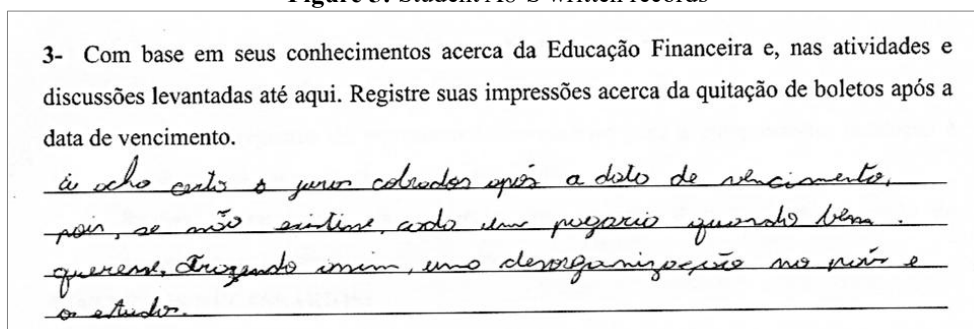 Figure 3: Student A6's written records
3- Com base em seus conhecimentos acerca da Educação Financeira e, nas atividades e
discussões levantadas até aqui. Registre suas impressões acerca da quitação de boletos após a
data de vencimento.
acho certo o juros cobrados após a data de vencimento,
pois, se não existisse, cada um pagaria quando bem
queresse, trazendo assim, uma desorganização no país e
o estado.